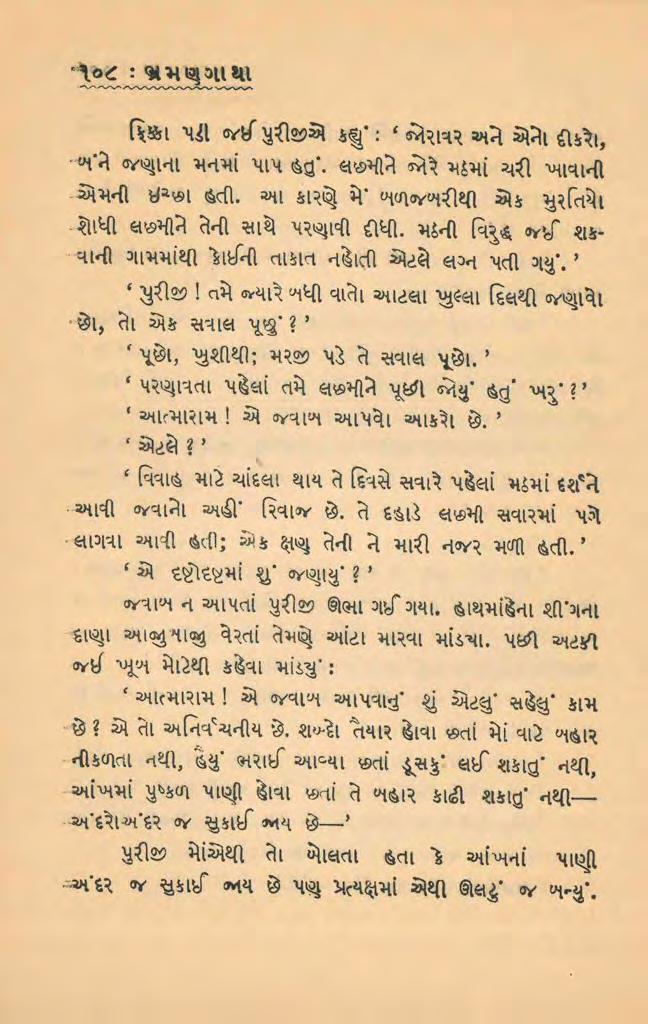 ૧૦૮ : ભ્રમણગાથા
ફિક્કા પડી જઈ પુરીજીએ કહ્યું : ‘ જોરાવર અને એનો દીકરો,
બંને જણાના મનમાં પાપ હતું. લછમીને જોરે મઠમાં ચરી ખાવાની
એમની ઇચ્છા હતી. આ કારણે મેં બળજબરીથી એક મુરતિયો
શોધી લછમીને તેની સાથે પરણાવી દીધી. મઠની વિરુદ્ધ જઈ શક-
વાની ગામમાંથી કોઈની તાકાત નહોતી એટલે લગ્ન પતી ગયું. ’
‘ પુરીજી ! તમે જ્યારે બધી વાતો આટલા ખુલ્લા દિલથી જણાવો
છો, તો એક સવાલ પૂછું ? ’
‘ પૂછો, ખુશીથી; મરજી પડે તે સવાલ પૂછો. ’
‘ પરણાવતા પહેલાં તમે લછમીને પૂછી જોયું હતું ખરું ? ’
‘ આત્મારામ ! એ જવાબ આપવો આકરો છે. ’
‘ એટલે ? ’
‘ વિવાહ માટે ચાંદલા થાય તે દિવસે સવારે પહેલાં મઠમાં દર્શને
આવી જવાનો અહીં રિવાજ છે. તે દહાડે લછમી સવારમાં પગે
લાગવા આવી હતી; એક ક્ષણ તેની ને મારી નજર મળી હતી. ’
‘ એ દષ્ટોદષ્ટમાં શું જણાયું ? ’
જવાબ ન આપતાં પુરીજી ઊભા ગઈ ગયા. હાથમાંહેના શીંગના
દાણા આજુબાજુ વેરતાં તેમણે આંટા મારવા માંડ્યા. પછી અટકી
જઈ ખૂબ મોટેથી કહેવા માંડ્યું :
‘ આત્મારામ ! એ જવાબ આપવાનું શું એટલું સહેલું કામ
છે ? એ તો અનિર્વચનીય છે. શબ્દો તૈયાર હોવા છતાં મોં વાટે બહાર
નીકળતા નથી, હૈયું ભરાઈ આવ્યા છતાં ડૂસકું લઈ શકાતું નથી,
આંખમાં પુષ્કળ પાણી હોવા છતાં તે બહાર કાઢી શકાતું નથી—
અંદરોઅંદર જ સુકાઈ જાય છે—’
પુરીજી મોંએથી તો બોલતા હતા કે આંખનાં પાણી
અંદર જ સુકાઈ જાય છે પણ પ્રત્યક્ષમાં એથી ઊલટું જ બન્યું.